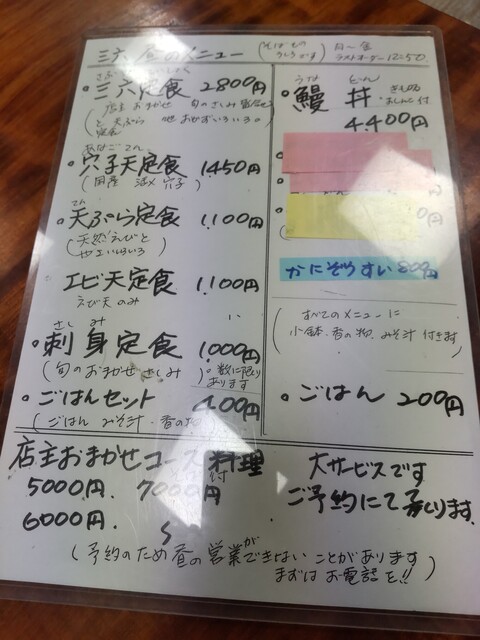 三六 昼のメニュー
月〜金
ラストオーダー 12:50
三六定食 2800円
店主おまかせ 旬のさしみ
と 天ぷら 他 おかずいろいろ
あなご てん
穴子天定食 1450円
(国産 活〆穴子)
てん
天ぷら定食 1,100円
(天然えびと
やさいいろいろ)
エビ天定食 1,100円
えび天のみ
さしみ
刺身定食 1,000円
(旬のおまかせ さしみ) 数に限り
あります
ごはんセット 400円
(ごはん みそ汁 香の物)
うな どん
鰻丼
4,400円
0円
かにぞうすい 800円
(すべてのメニューに
小鉢、香の物、みそ汁 付きます)
ごはん 200円
店主おまかせコース料理
5000円 7000円
6000円
大サービスです
ご予約にて承ります
(予約のため昼の営業ができないことがあります
まずは お電話を!!)